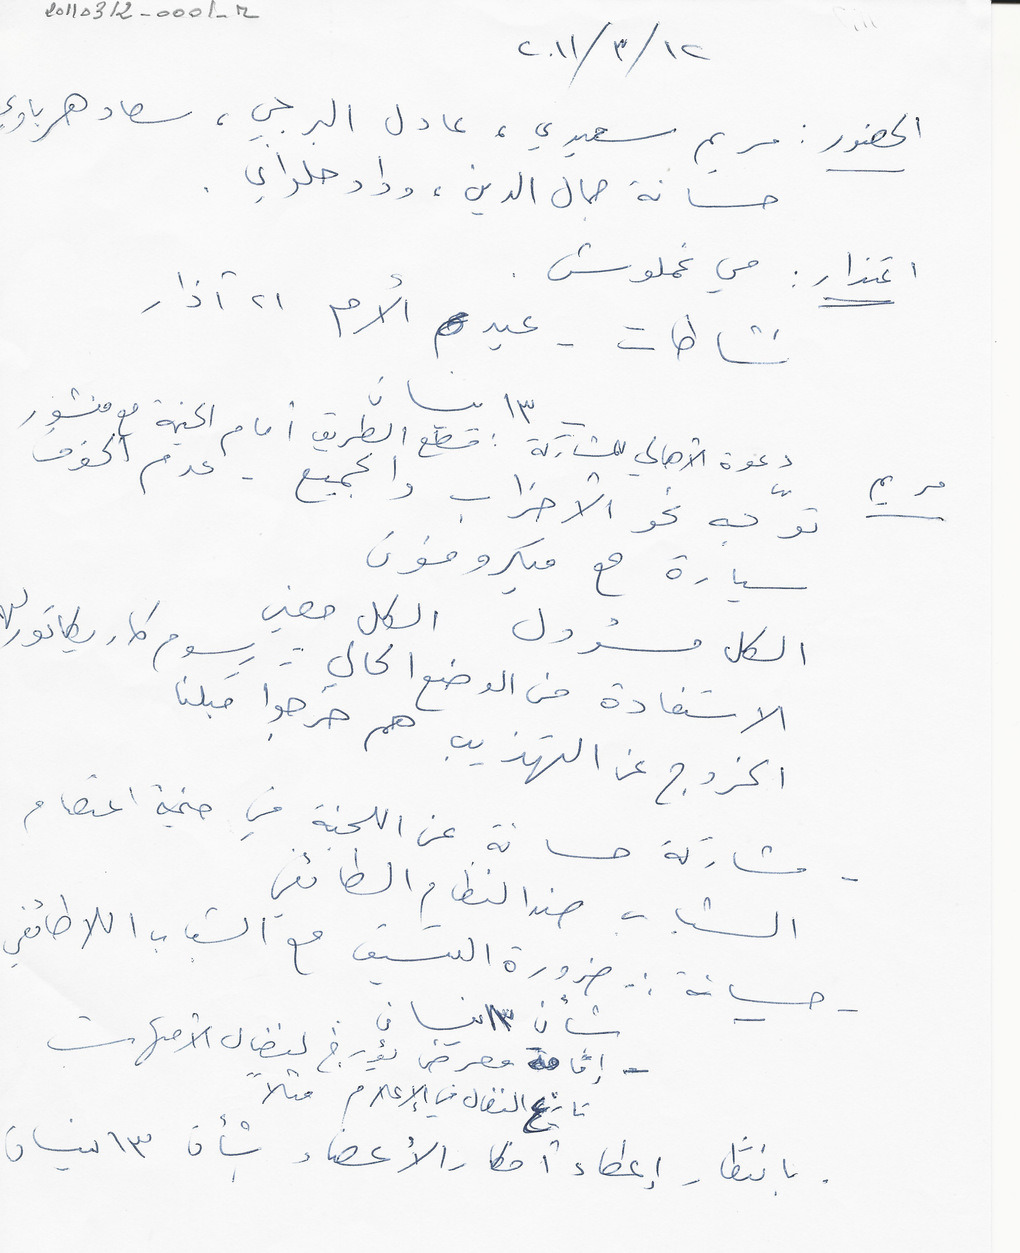 20110312-0001-M
٢٠١١/٣/١٢
الحضور : مريم سعيدي ، عادل البرجي ، سعاد هرباوي
حسانة جمال الدين ، وداد حلواني .
اعتذار : مي غملوش .
نشاطات - عيد الأم ٢١ آذار
١٣ نيسان
دعوة الأهالي للمشاركة : قطع الطريق أمام الخيمة مع منشور
مريم توجّه نحو الأحزاب والجميع - عدم الخوف
سيارة مع ميكروفون
الكل مسؤول الكل معني
الاستفادة من الوضع الحالي - رسوم كاريكاتور
الخروج عن التهذيب هم خرجوا قبلنا
- مشاركة حسانة عن اللجنة في خيمة اعتصام
الشباب ضد النظام الطائفي
- حسانة : - ضرورة التنسيق مع الشباب اللاطائفي
شأن ١٣ نيسان
- إقامة معرض يؤرخ لنضال الأمهات
تاريخ النضال في الإعلام مثلاً
. بانتظار إعطاء أفكار الأعضاء بشأن ١٣ نيسان